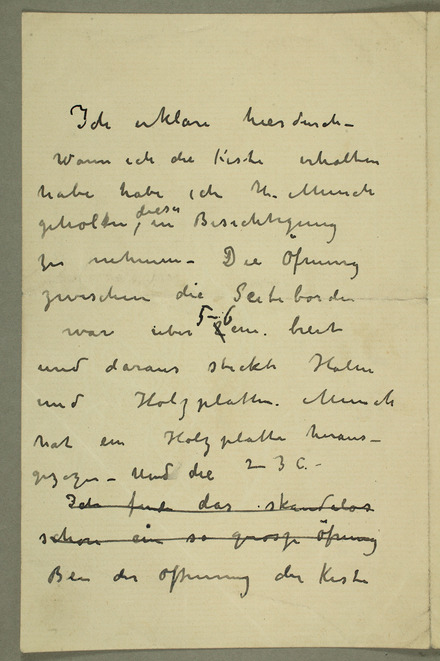 Ich erklare hierdurch –
Wann ich die Kiste erhalten
habe habe ich H. Munch
geholten, diese in Besichtigung
zu nehmen – Die Öfnung
zwischen die Seiteborder
war uber 5–6 cm. breit
und daraus steckte
und Holzplatten. Munch
hat ein Holzplatte heraus–
gezogen – Und die 2–3 c. –
Ich finde das skandalos
schon ein so grosse Öfnung
Bei der Offnung der Kiste